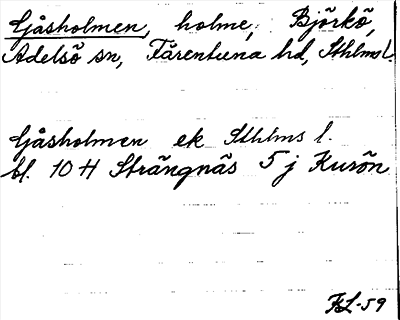 Gåsholmen, holme, Björkö,
Adelsö sn, Färentuna hd, Sthlms l.
Gåsholmen ek Sthlms l.
bl. 10 H Strängnäs 5 j Kurön
KL-59